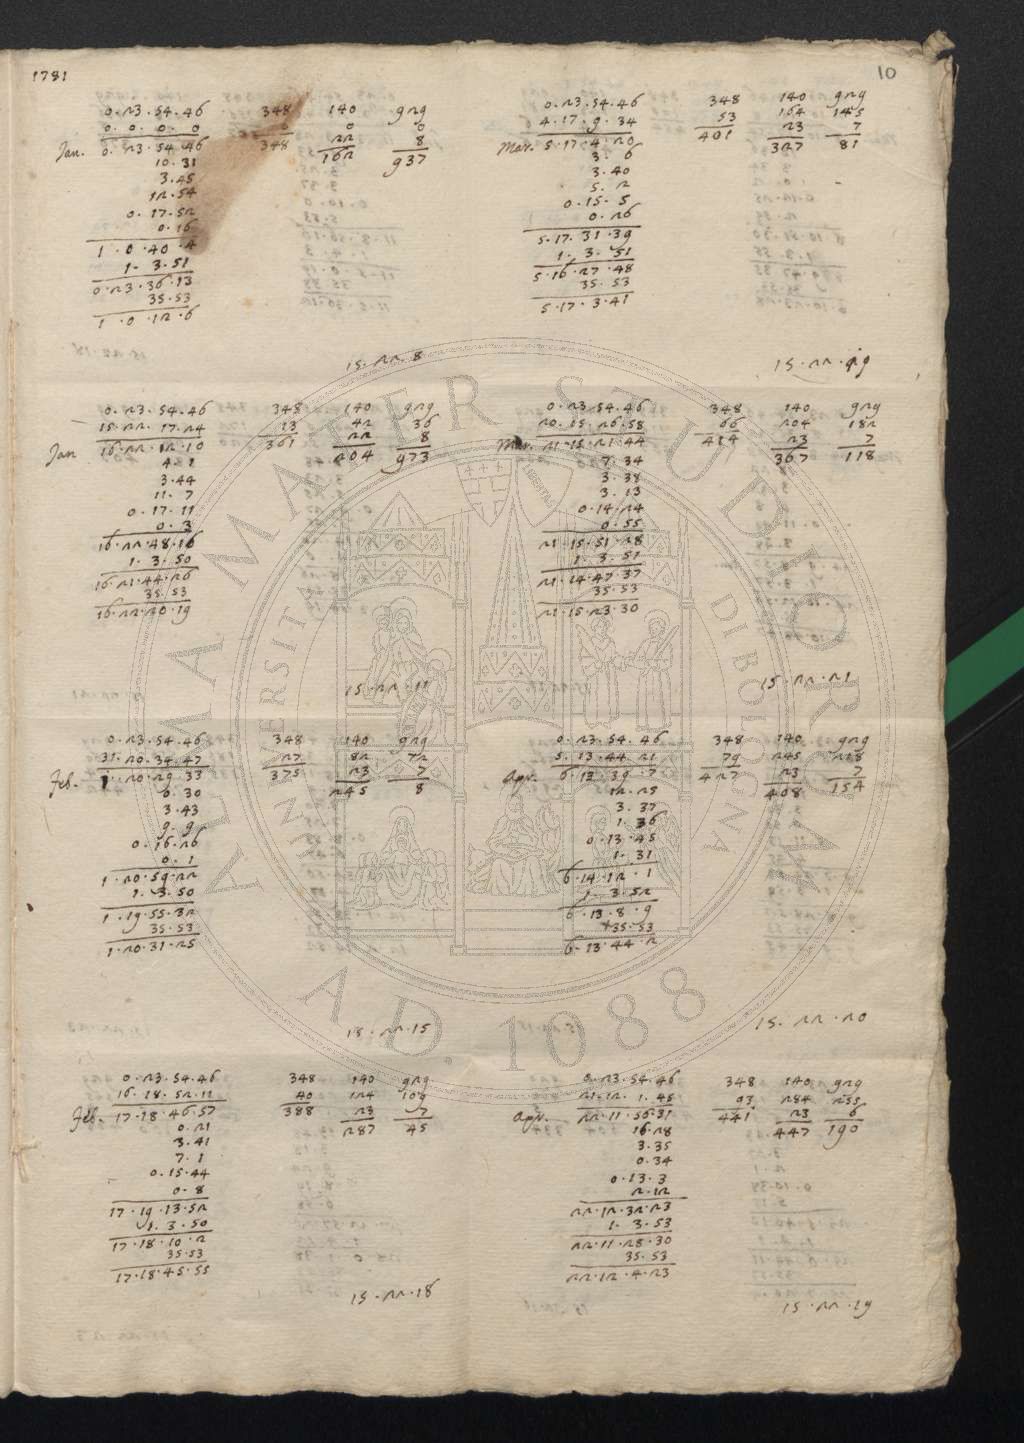 1781
10
0.23.54.46 348 140 929
0. 0. 0. 0 0 0
Jan. 0.23.54.46 348 22 8
10.31 162 937
3.45
12.54
0.17.52
0.16
1.0.40.4
1.3.51
0.23.36.13
35.53
1.0.12.6
15.22.8
0.23.54.46 348 140 929
15.22.17.24 13 42 36
Jan 16.22.12.10 361 22 8
4.1 204 973
3.44
11.7
0.17.11
0.3
16.22.48.16
1.3.50
16.21.44.26
35.53
16.22.20.19
15.22.11
0.23.54.46 348 140 929
31.20.34.47 27 82 72
Feb. 1.20.29.33 375 23 7
0.30 245 8
3.43
9.9
0.16.26
0.1
1.20.59.22
1.3.50
1.19.55.32
35.53
1.20.31.25
15.22.15
0.23.54.46 348 140 929
16.18.52.11 40 124 109
Feb. 17.18.46.57 388 23 7
0.21 287 45
3.41
7.1
0.15.44
0.8
17.19.13.52
1.3.50
17.18.10.2
35.53
17.18.45.55
15.22.18
0.23.54.46 348 140 929
4.17.9.34 53 164 145
Mar. 5.17.4.20 401 23 7
3.6 327 81
3.40
5.2
0.15.5
0.26
5.17.31.39
1.3.51
5.16.27.48
35.53
5.17.3.41
15.22.19
0.23.54.46 348 140 929
20.15.26.58 66 204 182
Mar. 21.15.21.44 414 23 7
7.34 367 118
3.38
3.13
0.14.24
0.55
21.15.51.28
1.3.51
21.14.47.37
35.53
21.15.23.30
15.22.21
0.23.54.46 348 140 929
5.13.44.21 79 245 218
Apr. 6.13.39.7 427 23 7
12.25 408 154
3.37
1.36
0.13.45
1.31
6.14.12.1
1.3.52
6.13.8.9
35.53
6.13.44.2
15.22.20
0.23.54.46 348 140 929
21.12.1.45 93 284 255
Apr. 22.11.56.31 441 23 6
16.28 447 190
3.35
0.34
0.13.3
2.12
22.12.32.23
1.3.53
22.11.28.30
35.53
22.12.4.23
15.22.19
ALMA MATER STUDIORUM
A.D. 1088
UNIVERSITÀ DI BOLOGNA